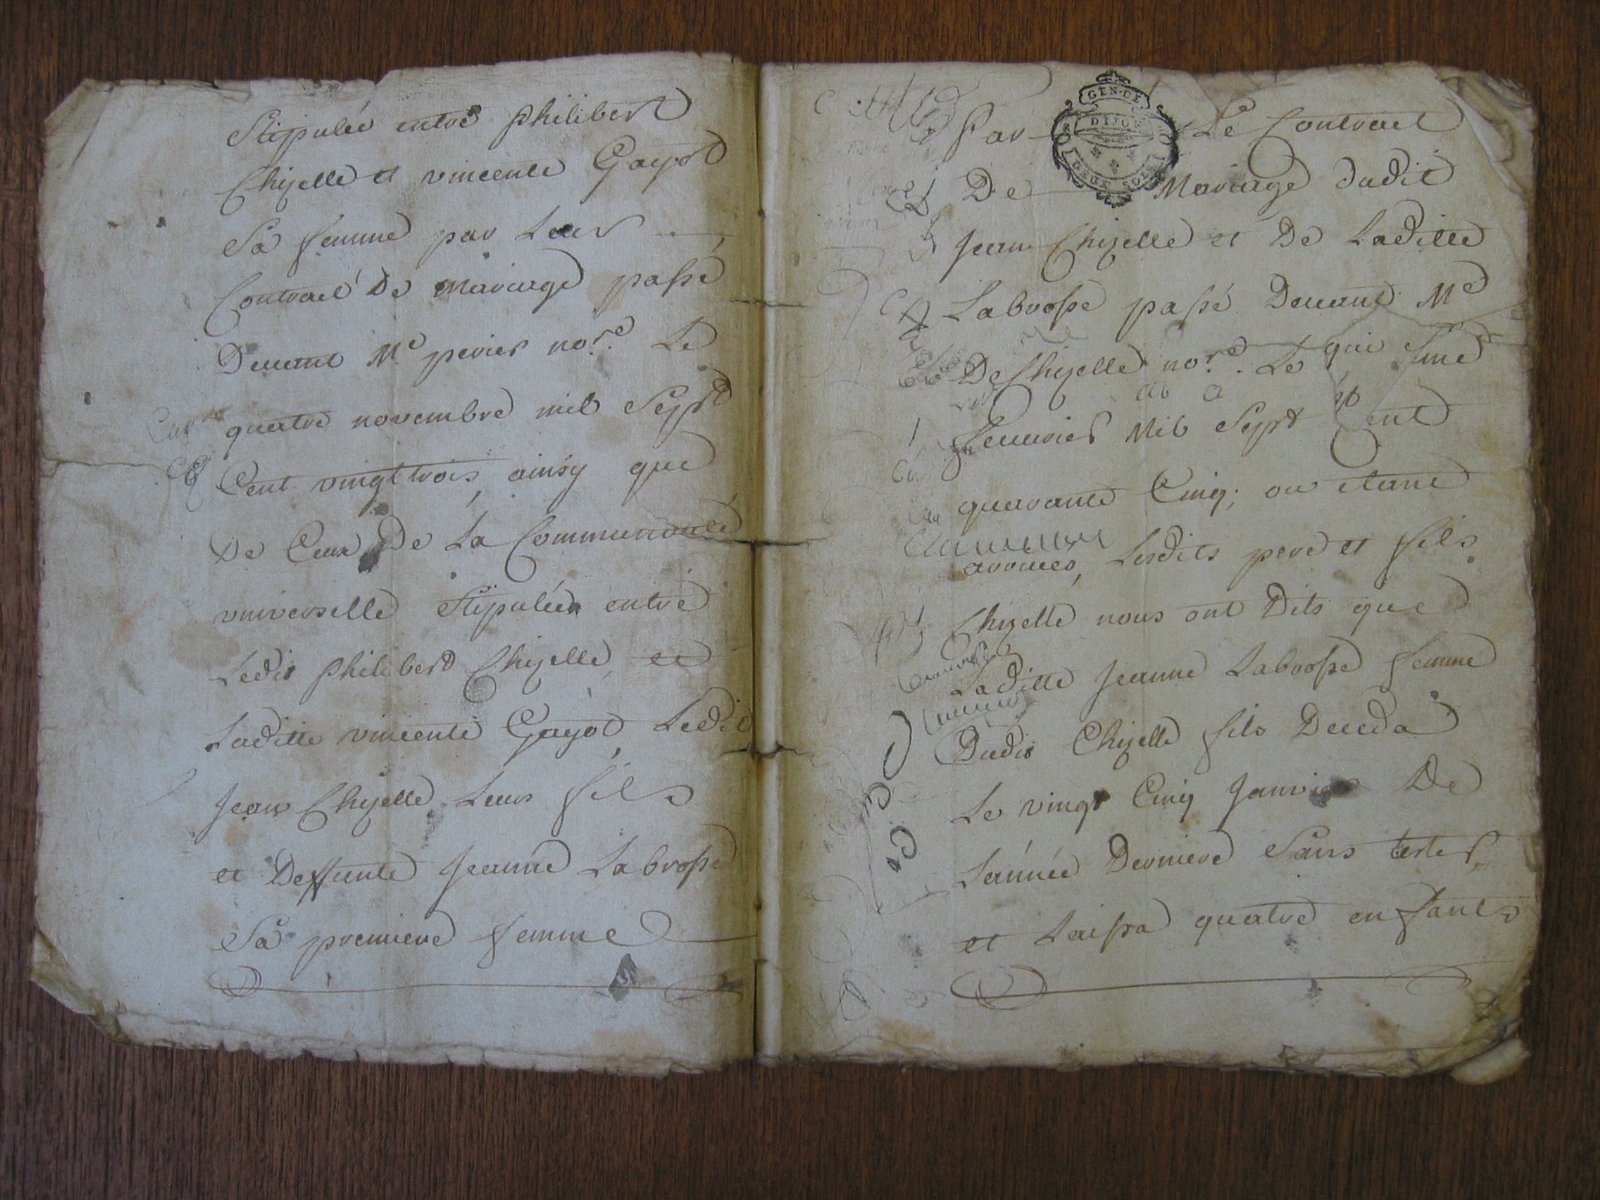 Stipulée entre philibert
Chizelle et vincente Gayot
Sa femme par Leur
Contract De mariage passé
Devant Me perier nore. Le
quatre novembre mil Sept
Cent vingt trois, ainsy que
De Ceux De La Communauté
universelle Stipulée entre
Ledit philibert Chizelle, et
Laditte vincente Gayot Ledit
Jean Chizelle Leurs fils
et Deffunte Jeanne Labrosse
Sa premiere femme
GEN. DE
DIJON
Par Le Contract
De Mariage dudit
Jean Chizelle et De Laditte
Labrosse passé Devant Me
De Chizelle nore. Le quinsme
Feuvrier Mil Sept Cent
quarante Cinq; ou etant
arrivées, Lesdits pere et fils
Chizelle nous ont Dits que
Laditte Jeanne Labrosse femme
Dudit Chizelle fils Deceda
Le vingt Cinq Janvier De
Lannée Derniere Sans tester,
et Laissa quatre enfants